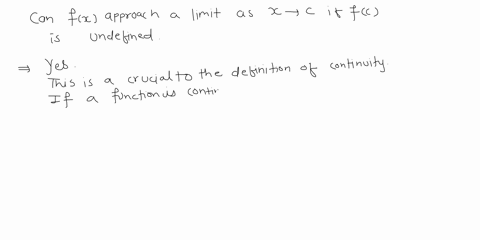 Can f(x) approach a limit as x → c if f(c)
is undefined.
⇒ Yes.
This is a crucial to the definition of continuity.
If a function is contin